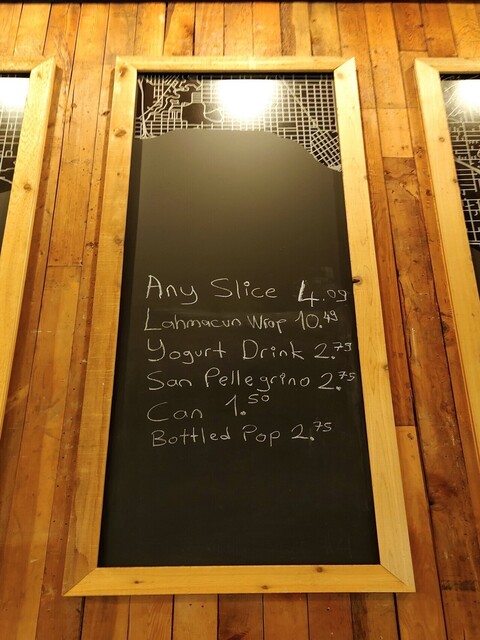 Any Slice 4.09
Lahmacun Wrap 10.49
Yogurt Drink 2.79
San Pellegrino 2.75
Can 1.50
Bottled Pop 2.75